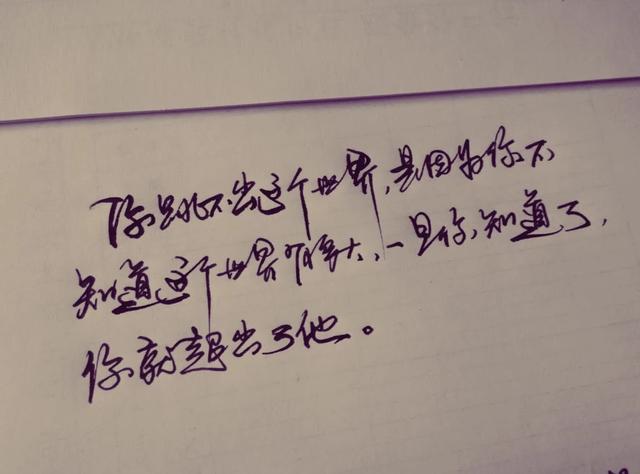 你跳不出这个世界,是因为你不
知道这个世界有多大,一旦你知道了,
你就超出了他。